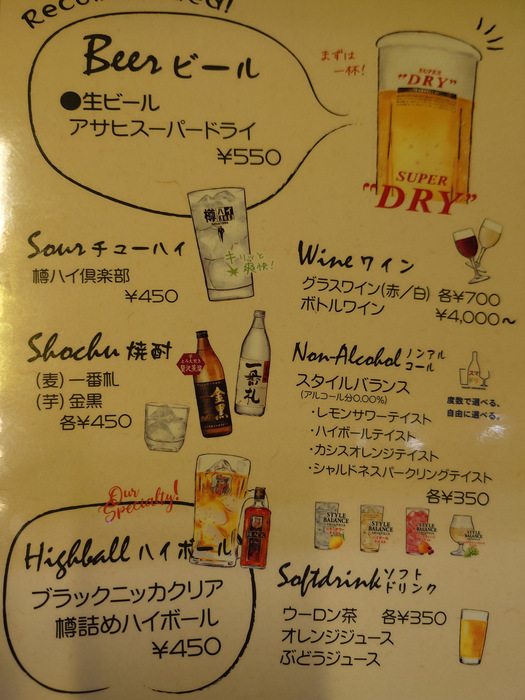 Recommended!
Beer ビール
●生ビール
アサヒスーパードライ
¥550
まずは
一杯!
SUPER
"DRY"
SUPER
"DRY"
Sour チューハイ
樽ハイ倶楽部
¥450
樽ハイ
キリッと
爽快!
Wine ワイン
グラスワイン(赤/白) 各¥700
ボトルワイン
¥4,000~
Shochu 焼酎
(麦) 一番札
(芋) 金黒
各¥450
贅沢茶塩
金黒
一番札
Non-Alcohol ノンアル
コール
スタイルバランス
(アルコール分0.00%)
・レモンサワーテイスト
・ハイボールテイスト
・カシスオレンジテイスト
・シャルドネスパークリングテイスト
各¥350
スマドリ
度数で選べる、
自由に選べる。
STYLE
BALANCE
STYLE
BALANCE
STYLE
BALANCE
Our
Specialty!
Highball ハイボール
ブラックニッカクリア
樽詰めハイボール
¥450
Softdrink ソフト
ドリンク
ウーロン茶 各¥350
オレンジジュース
ぶどうジュース